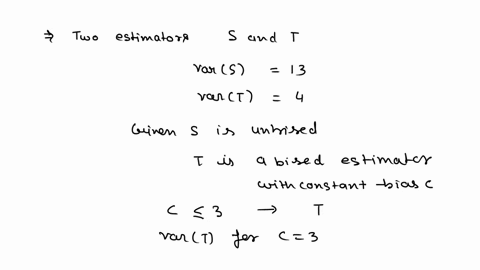 ⇒ Two estimators S and T
var(S) = 13
var(T) = 4
Given S is unbised
T is a bised estimator
with constant bias c
C ≤ 3 → T
var(T) for C=3